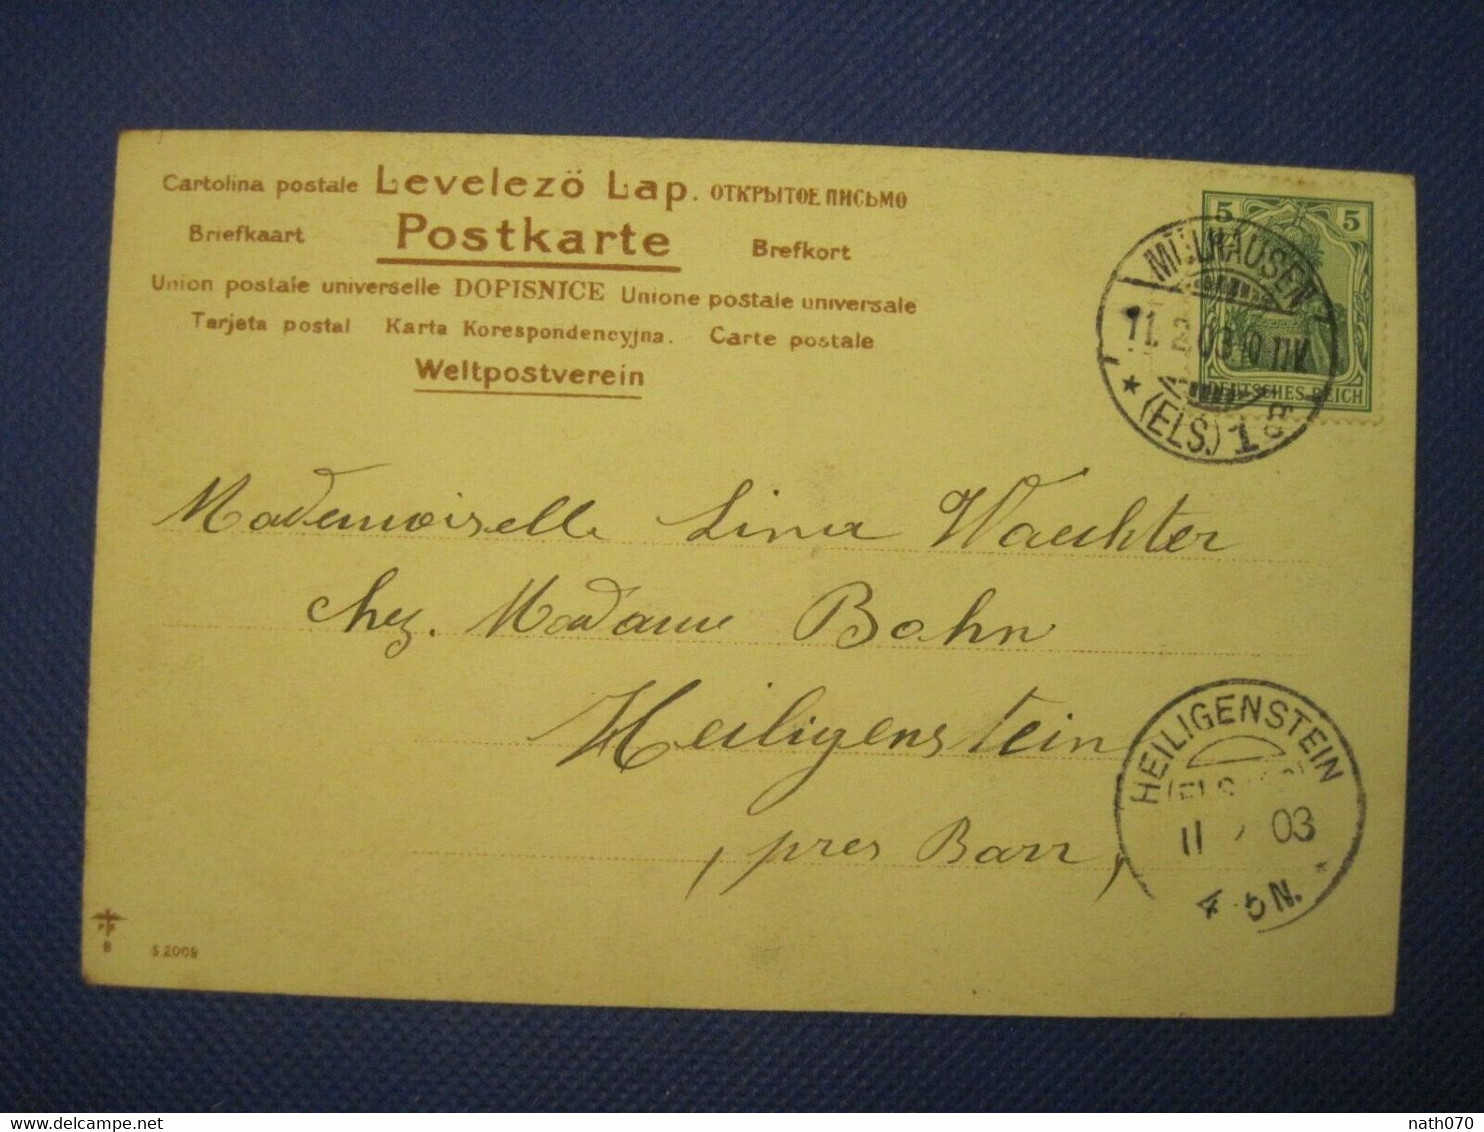 Cartolina postale Levelező Lap. ОТКРЫТОЕ ПИСЬМО
Briefkaart Postkarte Brefkort
Union postale universelle DOPISNICE Unione postale universale
Tarjeta postal Karta Korespondencyjna. Carte postale
Weltpostverein
5 5
DEUTSCHES REICH
MÜLHAUSEN
11. 2. 03
* (ELS.) 1
Mademoiselle Lina Waechter
chez. Madame Bohn
Heiligenstein
(près Barr)
HEILIGENSTEIN
11 2 03
4-5 N. *
PF
B
S. 2009
www.delcampe.net
nath070